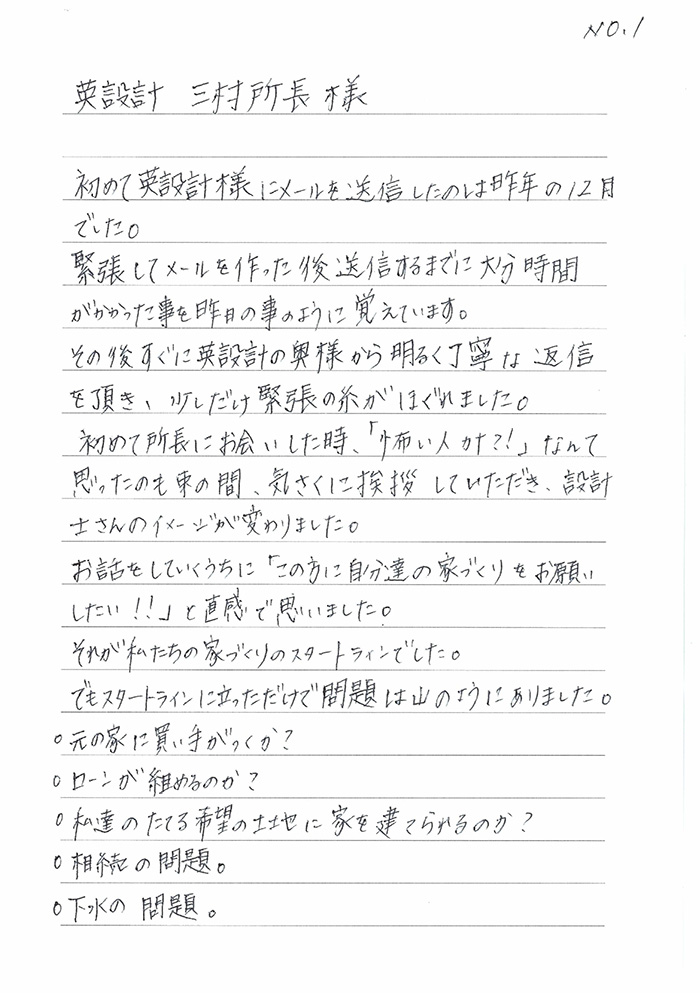 NO.1
英設計 三村所長様
初めて英設計様にメールを送信したのは昨年の12月
でした。
緊張してメールを作った後送信するまでに大分時間
がかかった事を昨日の事のように覚えています。
その後すぐに英設計の奥様から明るく丁寧な返信
を頂き、少しだけ緊張の糸がほぐれました。
初めて所長にお会いした時、「怖い人かな?!」なんて
思ったのも束の間、気さくに挨拶していただき、設計
士さんのイメージが変わりました。
お話をしていくうちに「この方に自分達の家づくりをお願い
したい!!」と直感で思いました。
それが私たちの家づくりのスタートラインでした。
でもスタートラインに立っただけで問題は山のようにありました。
○元の家に買い手がつくか?
○ローンが組めるのか?
○私達のたてる希望の土地に家を建てられるのか?
○相続の問題。
○下水の問題。